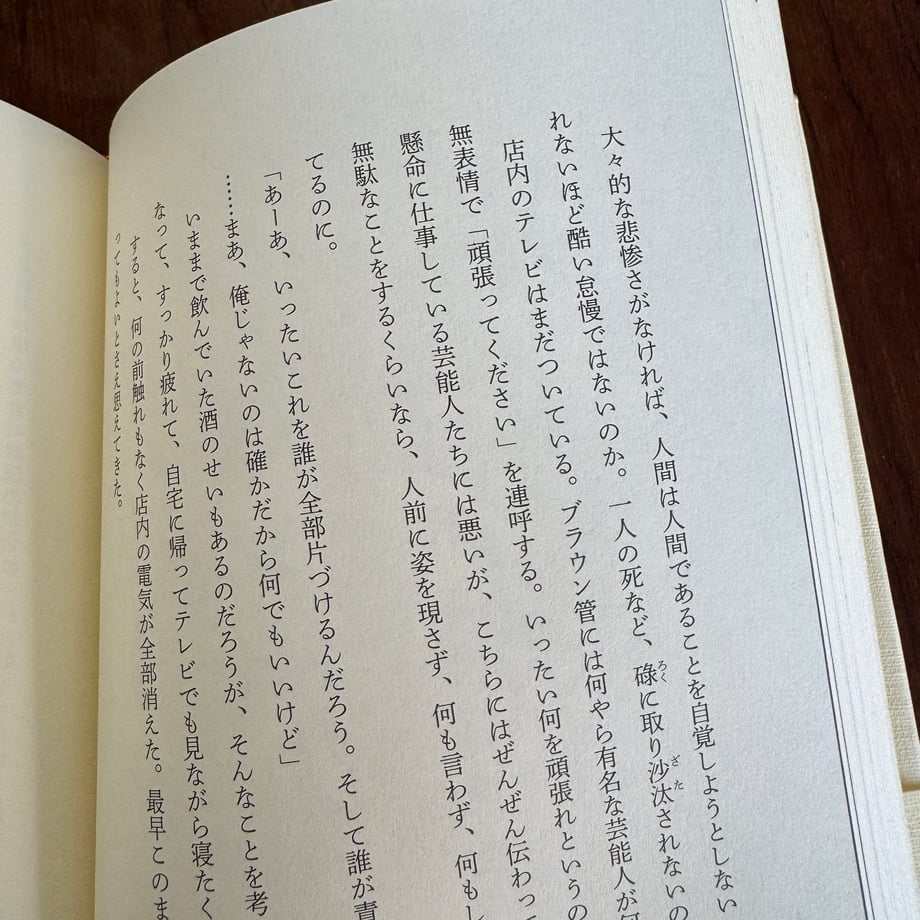 大々的な悲惨さがなければ、人間は人間であることを自覚しようとしない
れないほど酷い怠慢ではないのか。一人の死など、碌に取り沙汰されないの
店内のテレビはまだついている。ブラウン管には何やら有名な芸能人が何
無表情で「頑張ってください」を連呼する。いったい何を頑張れというの
懸命に仕事している芸能人たちには悪いが、こちらにはぜんぜん伝わって
無駄なことをするくらいなら、人前に姿を現さず、何も言わず、何もし
てるのに。
「あーあ、いったいこれを誰が全部片づけるんだろう。そして誰が青
……まあ、俺じゃないのは確かだから何でもいいけど」
いままで飲んでいた酒のせいもあるのだろうが、そんなことを考
なって、すっかり疲れて、自宅に帰ってテレビでも見ながら寝たく
すると、何の前触れもなく店内の電気が全部消えた。最早このま
ってもよいとさえ思えてきた。